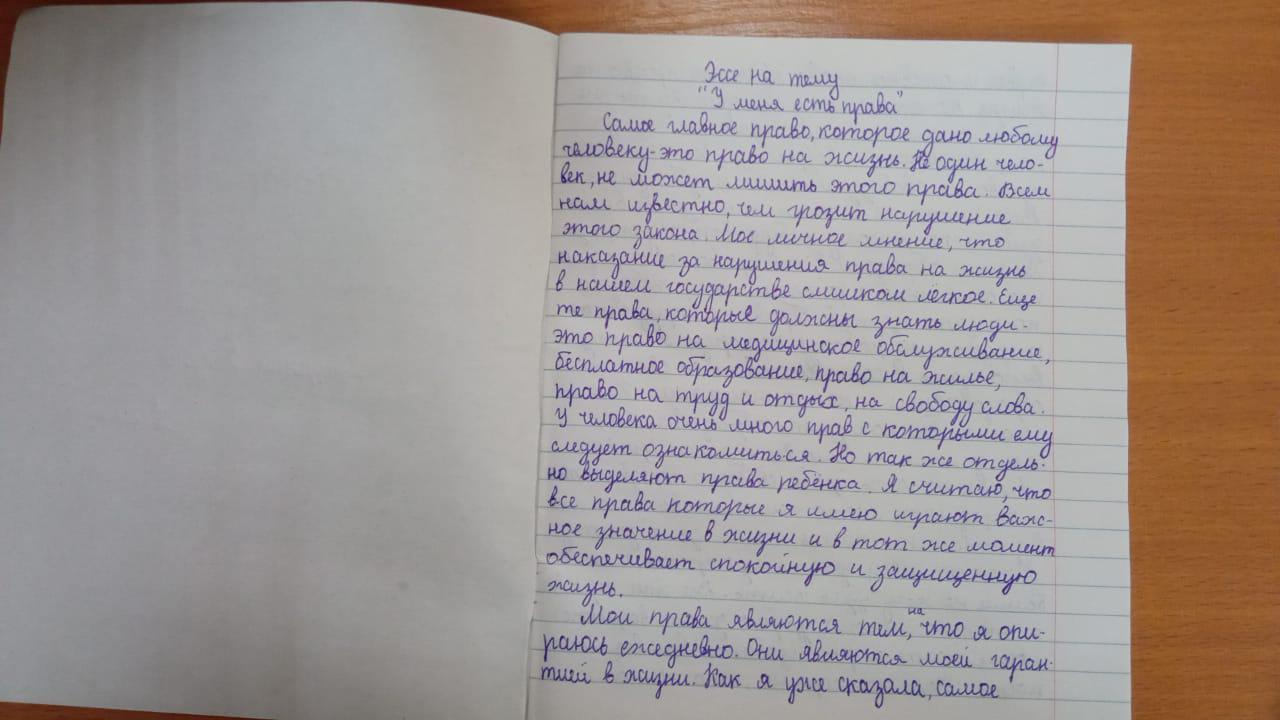 Эссе на тему
"У меня есть права"
Самое главное право, которое дано любому
человеку-это право на жизнь. Не один чело-
век, не может лишить этого права. Всем
нам известно, чем грозит нарушение
этого закона. Мое личное мнение, что
наказание за нарушения права на жизнь
в нашем государстве слишком лёгкое. Еще
те права, которые должны знать люди-
это право на медицинское обслуживание,
бесплатное образование, право на жилье,
право на труд и отдых, на свободу слова.
У человека очень много прав с которыми ему
следует ознакомиться. Но так же отдель-
но выделяют права ребёнка. Я считаю, что
все права которые я имею играют важ-
ное значение в жизни и в тот же момент
обеспечивает спокойную и защищенную
жизнь.
Мои права являются тем, на что я опи-
раюсь ежедневно. Они являются моей гаран-
тией в жизни. Как я уже сказала, самое